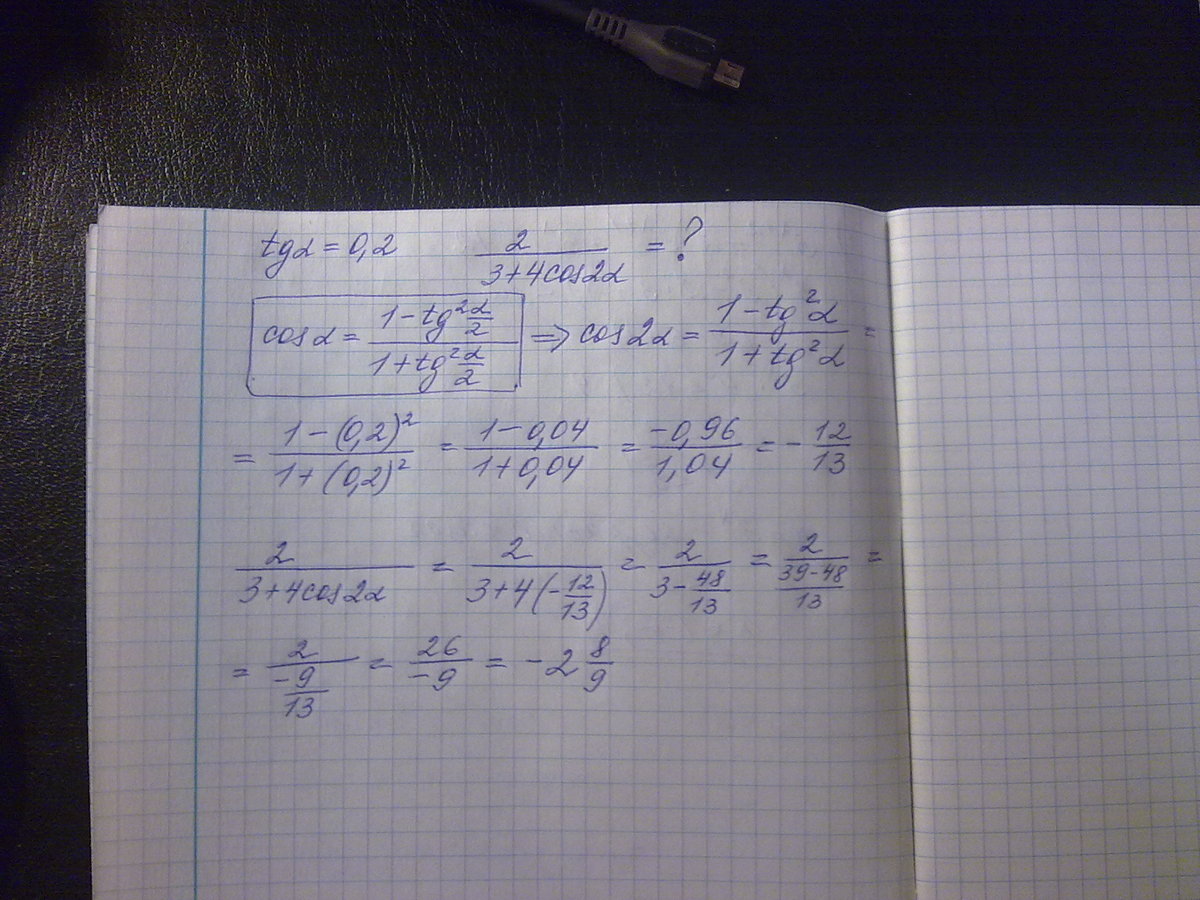 tgα = 0,2 2/(3+4cos2α) = ?
cosα = (1-tg²(α/2))/(1+tg²(α/2)) ⇒ cos2α = (1-tg²α)/(1+tg²α) =
= (1-(0,2)²)/(1+(0,2)²) = (1-0,04)/(1+0,04) = (-0,96)/(1,04) = -12/13
2/(3+4cos2α) = 2/(3+4(-12/13)) = 2/(3-48/13) = 2/((39-48)/13) =
= 2/(-9/13) = 26/(-9) = -2 8/9